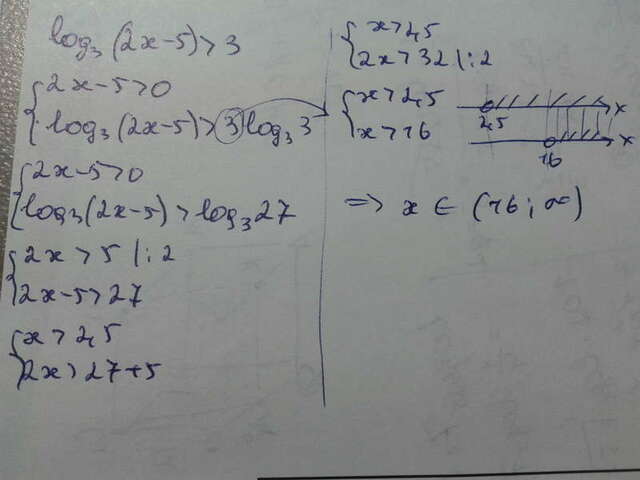 log₃(2x-5)>3
{2x-5>0
{log₃(2x-5)>3log₃3
{2x-5>0
{log₃(2x-5)>log₃27
{2x>5 |:2
{2x-5>27
{x>2,5
{2x>27+5
{x>2,5
{2x>32 |:2
{x>2,5
{x>16
2,5 x
16 x
=> x ∈ (16; ∞)